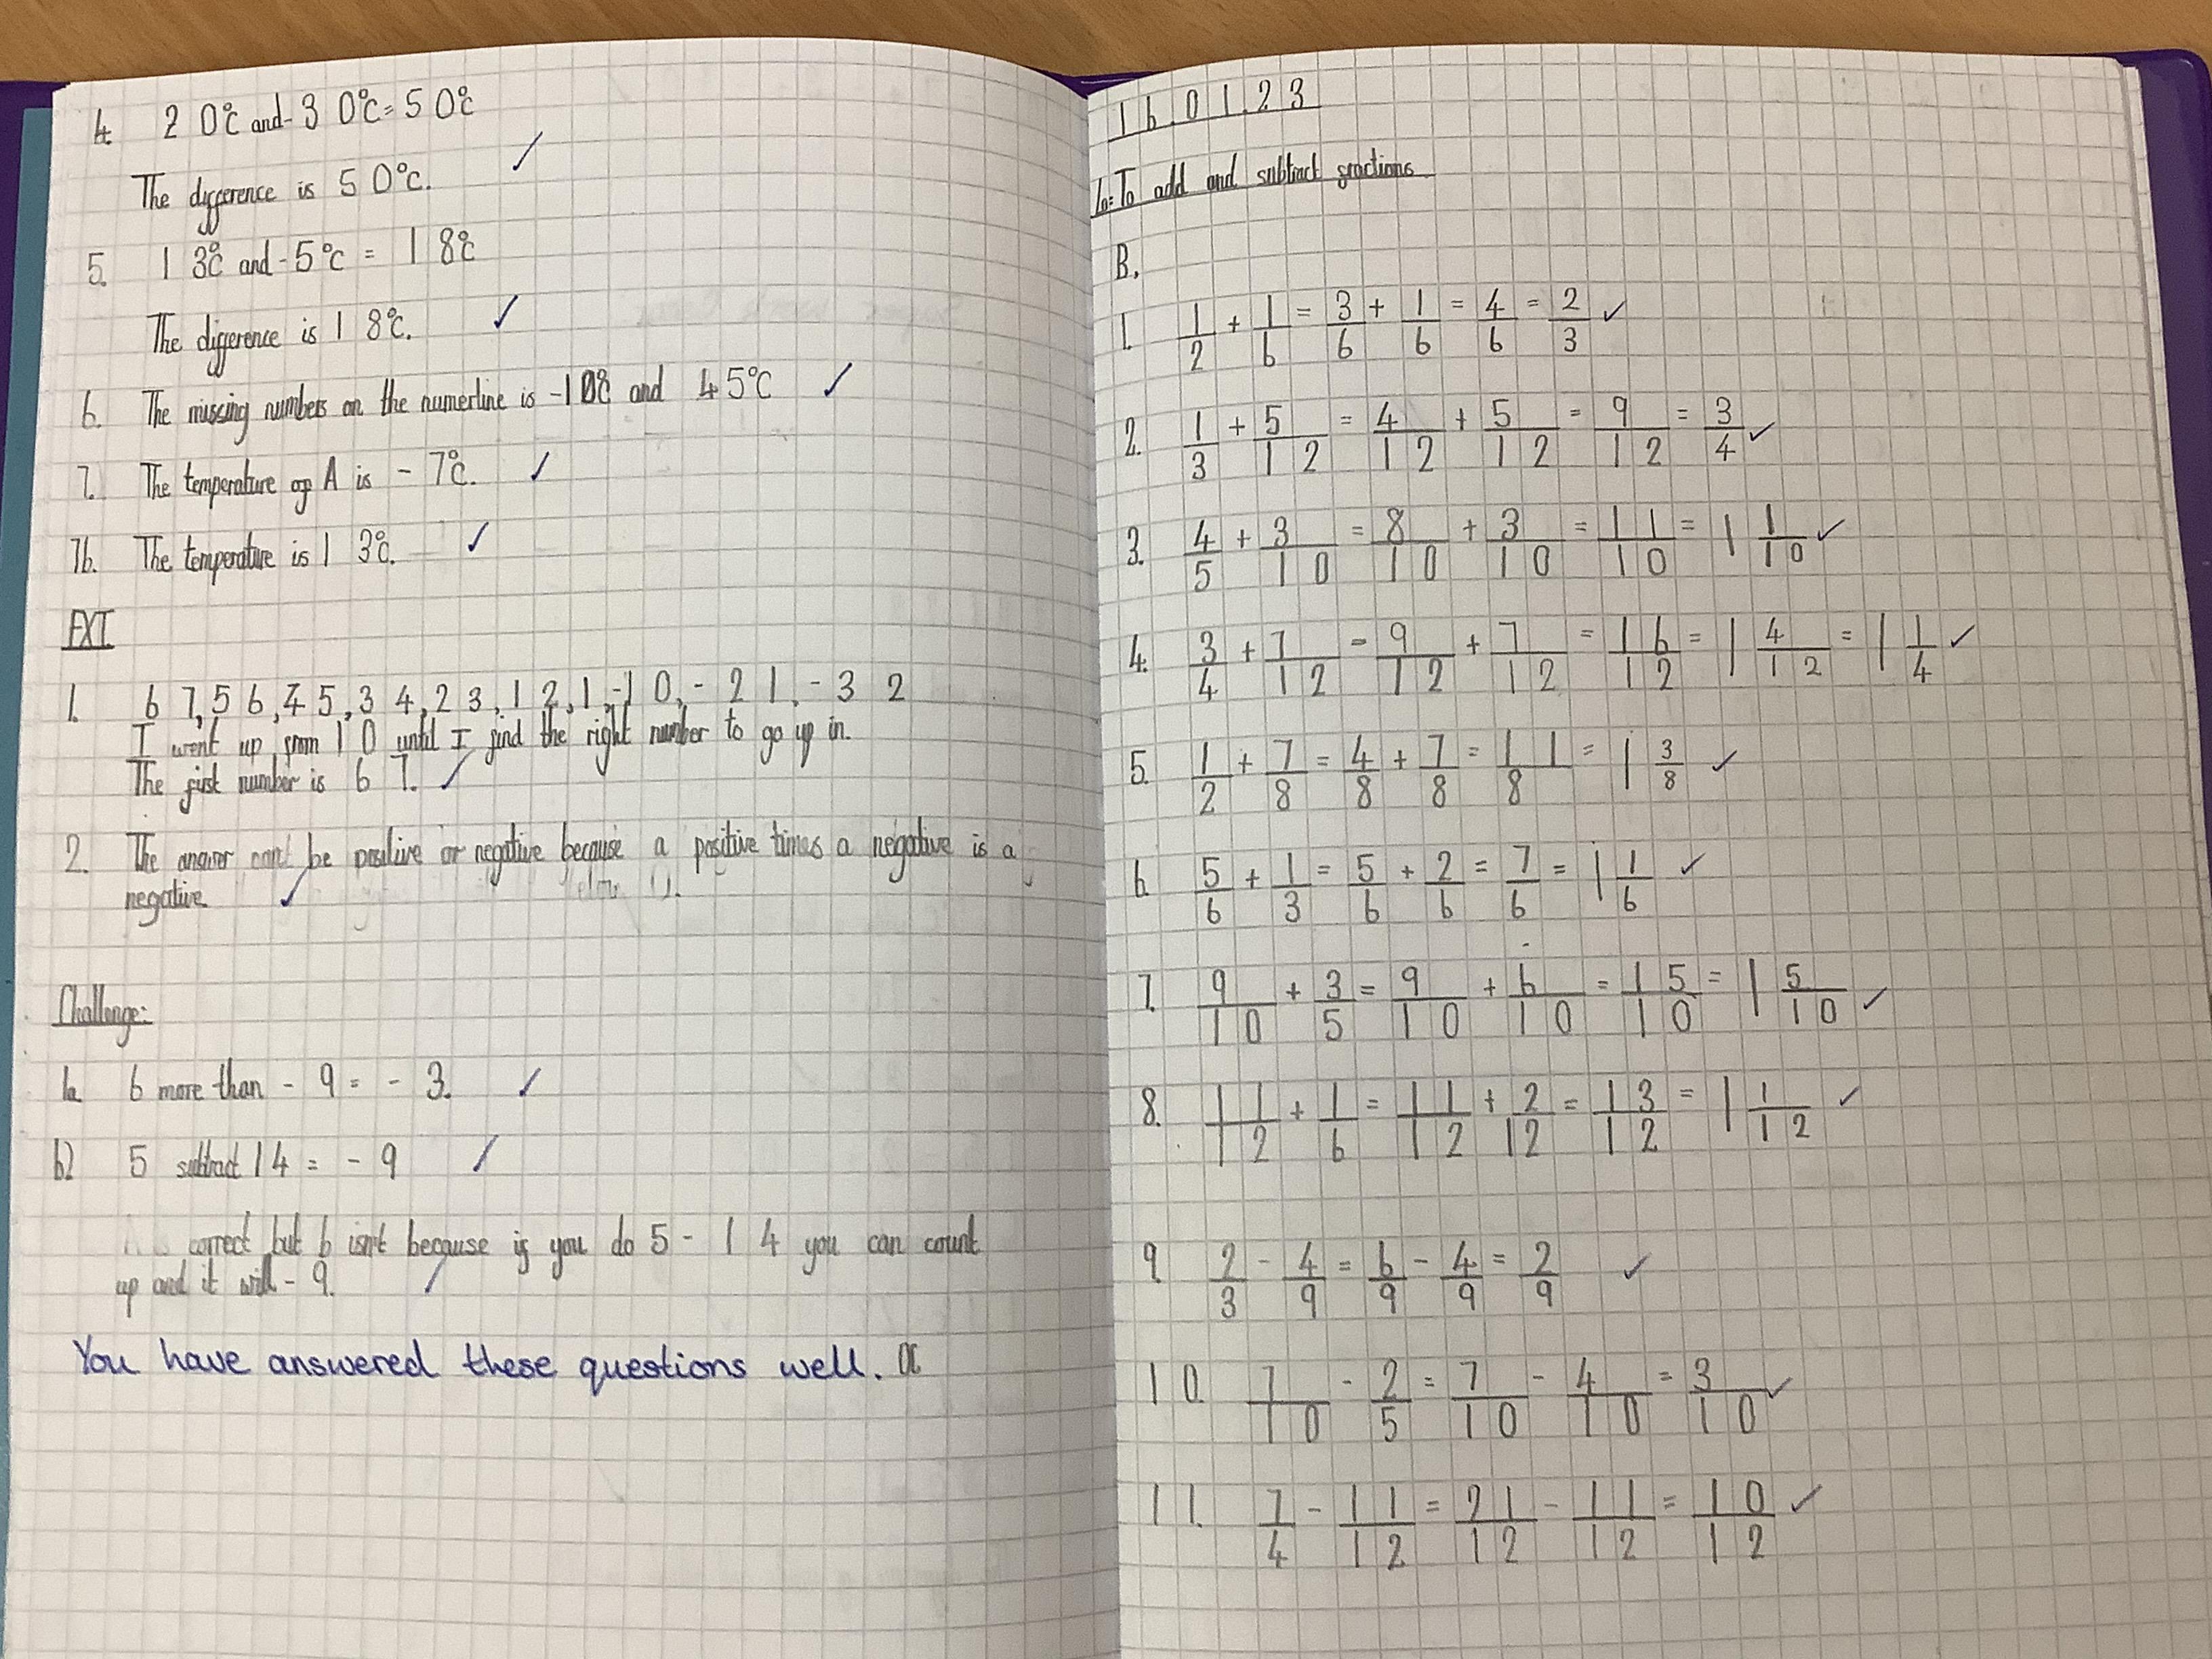 4. 20°c and -30°c = 50°c
The difference is 50°c.
5. 13°c and -5°c = 18°c
The difference is 18°c.
6. The missing numbers on the numerline is -10°c and 45°C
7. The temperature of A is -7°c.
7b. The temperature is 13°c.
EXT
1. 67, 56, 45, 34, 23, 12, 1, -10, -21, -32
I went up from 10 until I find the right number to go up in.
The first number is 67.
2. The answer can't be positive or negative because a positive times a negative is a
negative.
Challenge:
1a. 6 more than -9 = -3.
b) 5 subtract 14 = -9
correct but b isn't because if you do 5 - 14 you can count
up and it will -9.
You have answered these questions well.
16.01.23
Lo: To add and subtract fractions
B.
1. 1/2 + 1/6 = 3/6 + 1/6 = 4/6 = 2/3
2. 1/3 + 5/12 = 4/12 + 5/12 = 9/12 = 3/4
3. 4/5 + 3/10 = 8/10 + 3/10 = 11/10 = 1 1/10
4. 3/4 + 7/12 = 9/12 + 7/12 = 16/12 = 1 4/12 = 1 1/4
5. 1/2 + 7/8 = 4/8 + 7/8 = 11/8 = 1 3/8
6. 5/6 + 1/3 = 5/6 + 2/6 = 7/6 = 1 1/6
7. 9/10 + 3/5 = 9/10 + 6/10 = 15/10 = 1 5/10
8. 11/12 + 1/6 = 11/12 + 2/12 = 13/12 = 1 1/12
9. 2/3 - 4/9 = 6/9 - 4/9 = 2/9
10. 7/10 - 2/5 = 7/10 - 4/10 = 3/10
11. 7/4 - 11/12 = 21/12 - 11/12 = 10/12